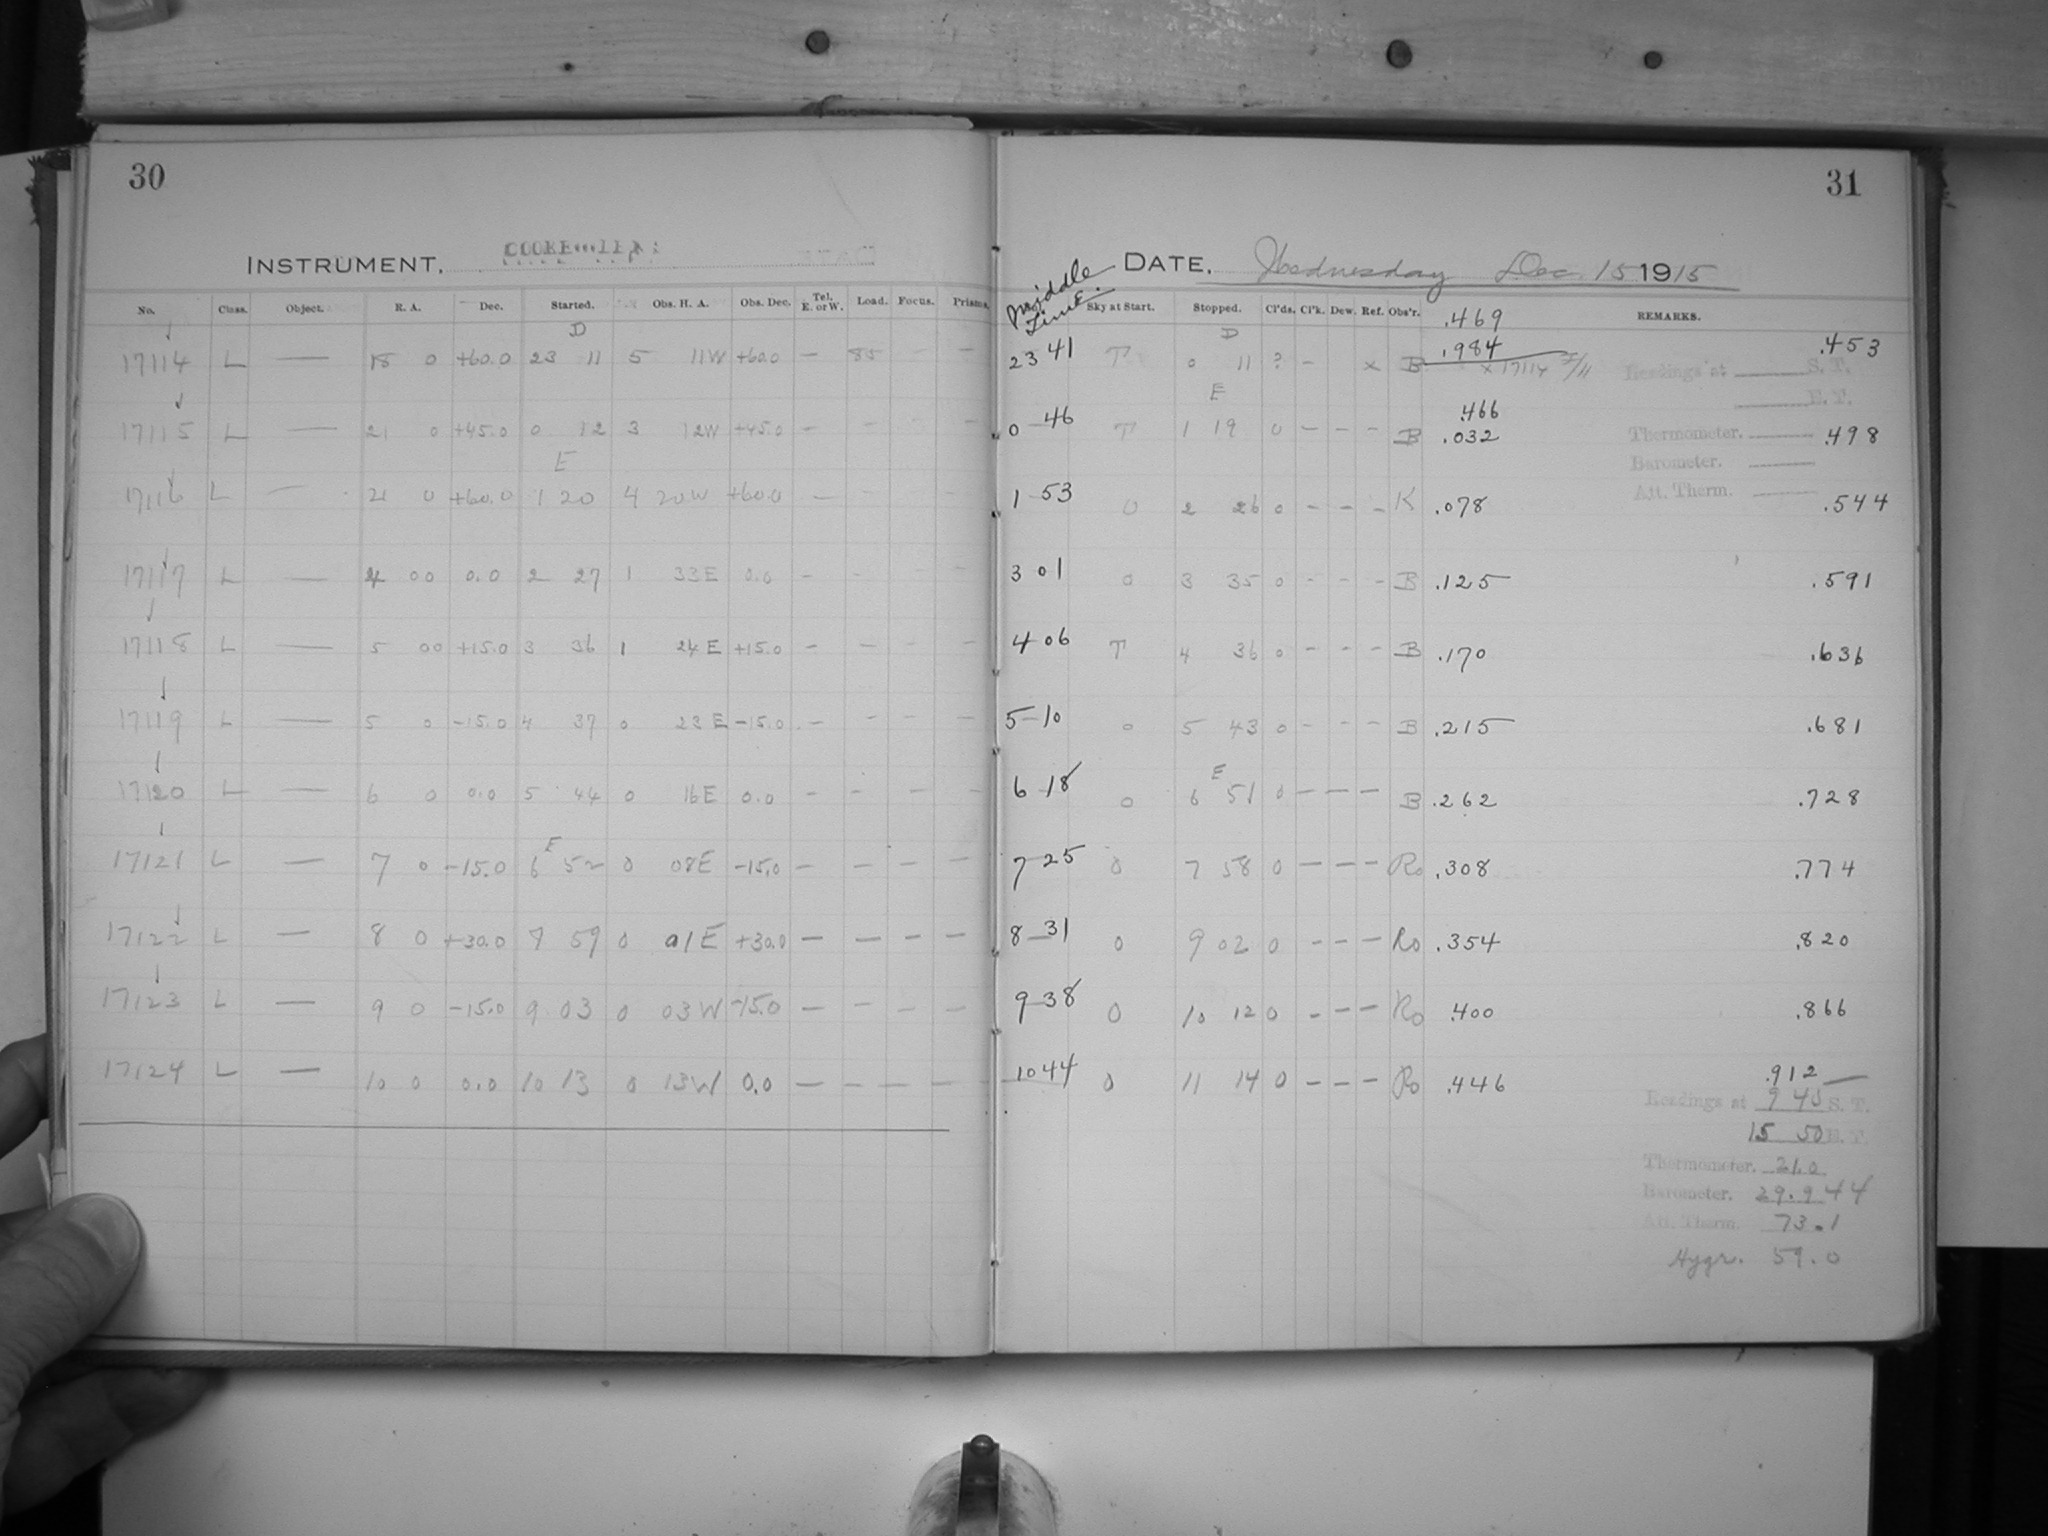 30
INSTRUMENT.
No. Class. Object. R. A. Dec. Started. Obs. H. A. Obs. Dec. Tel. E. or W. Load. Focus. Prisms.
D
17114 L — 18 0 +60.0 23 11 5 11W +60.0 — 85 — —
17115 L — 21 0 +45.0 0 12 3 12W +45.0 — — — —
E
17116 L — 21 0 +60.0 1 20 4 20W +60.0 — — — —
17117 L — 4 00 0.0 2 27 1 33E 0.0 — — — —
17118 L — 5 00 +15.0 3 36 1 24E +15.0 — — — —
17119 L — 5 0 -15.0 4 37 0 23E -15.0 — — — —
17120 L — 6 0 0.0 5 44 0 16E 0.0 — — — —
E
17121 L — 7 0 -15.0 6 52 0 08E -15.0 — — — —
17122 L — 8 0 +30.0 7 59 0 01E +30.0 — — — —
17123 L — 9 0 -15.0 9 03 0 03W -15.0 — — — —
17124 L — 10 0 0.0 10 13 0 13W 0.0 — — — —
31
DATE. Wednesday Dec. 15 1915
Middle Time.
Sky at Start. Stopped. Cl'ds. Cl'k. Dew. Ref. Obs'r. REMARKS.
.469
D
23 41 T 0 11 ? — x B .984 x 17114 .453
Readings at S. T.
E. T.
E
.466
0—46 T 1 19 0 — — — B .032 Thermometer. .498
Barometer.
Att. Therm.
1—53 0 2 26 0 — — — K .078 .544
3 01 0 3 35 0 — — — B .125 .591
4 06 T 4 36 0 — — — B .170 .636
5—10 0 5 43 0 — — — B .215 .681
E
6—18 0 6 51 0 — — — B .262 .728
7—25 0 7 58 0 — — — Ro .308 .774
8—31 0 9 02 0 — — — Ro .354 .820
9—38 0 10 12 0 — — — Ro .400 .866
10 44 0 11 14 0 — — — Ro .446 .912
Readings at 9 40 S. T.
15 50 E. T.
Thermometer. 21.0
Barometer. 29.944
Att. Therm. 73.1
Hygr. 59.0